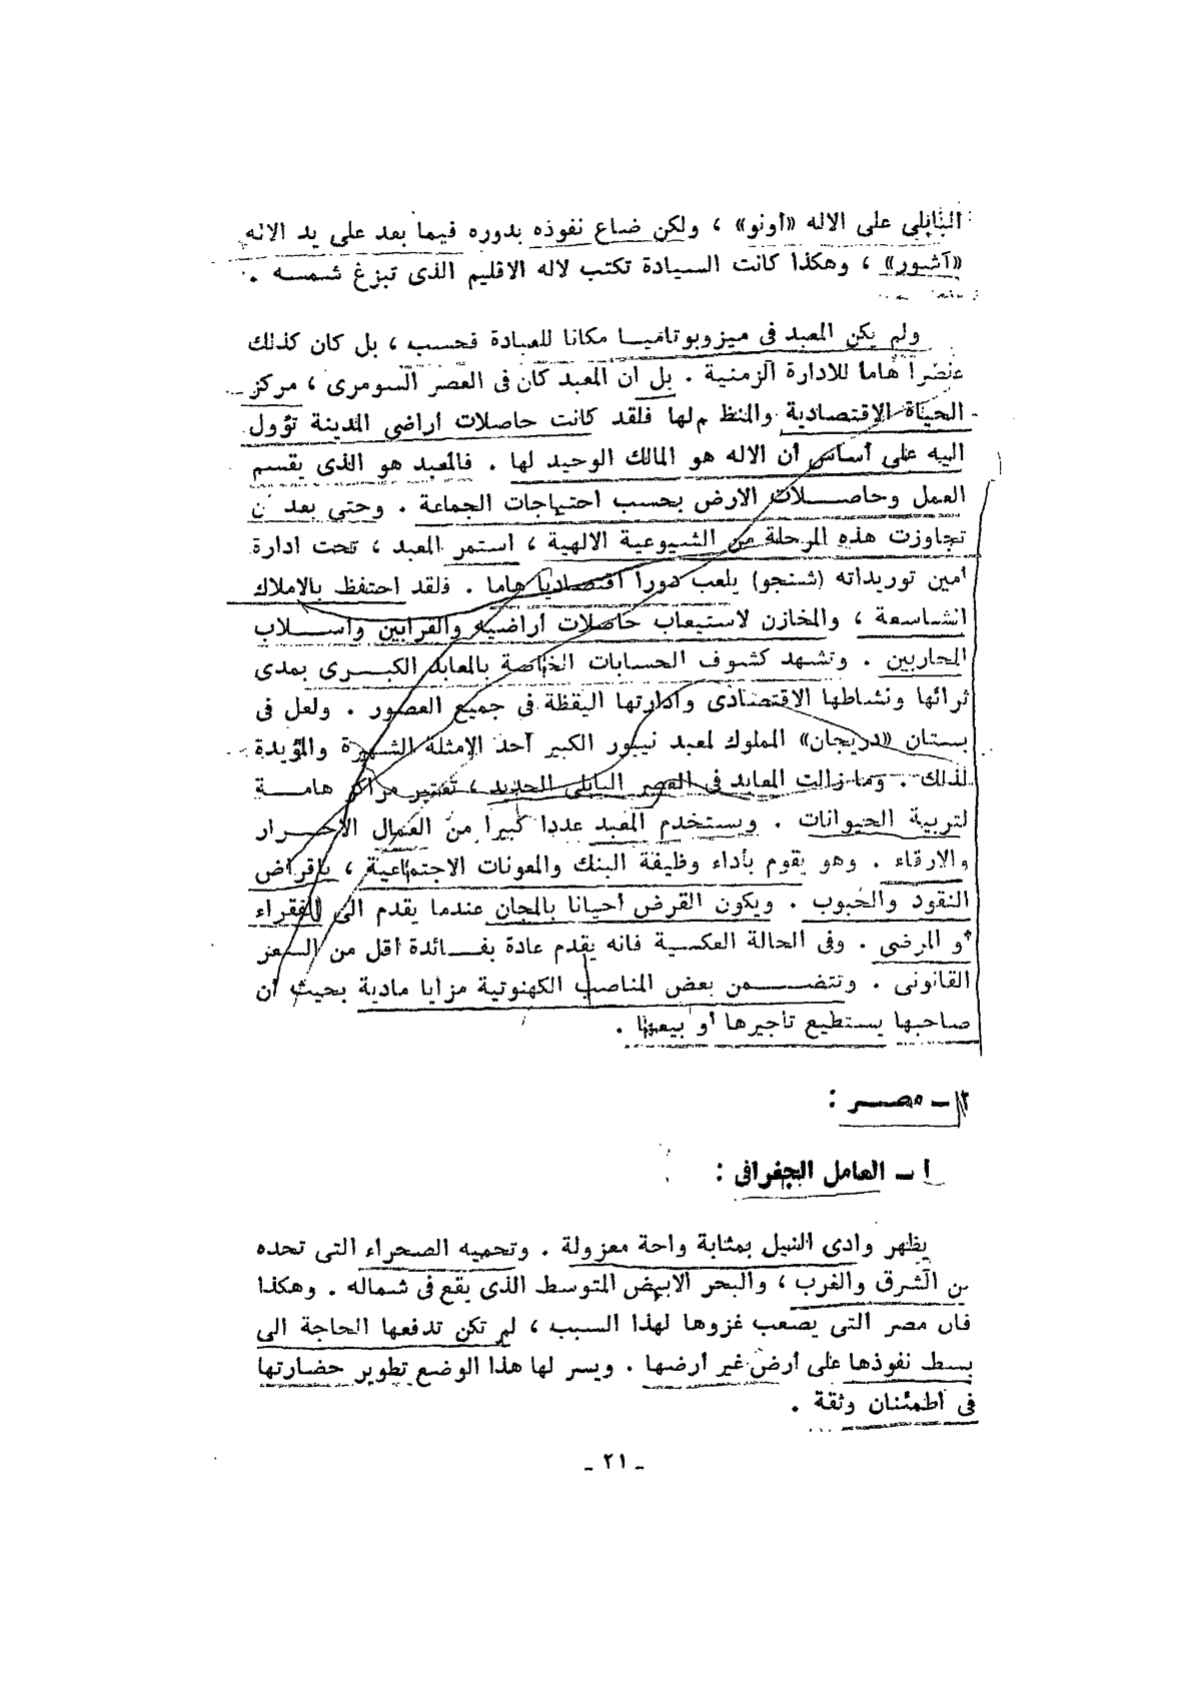 البابلى على الاله «أونو» ، ولكن ضاع نفوذه بدوره فيما بعد على يد الاله
«آشور» ، وهكذا كانت السيادة تكتب لاله الاقليم الذى تبزغ شمسه .
ولم يكن المعبد فى ميزوبوتاميا مكانا للعبادة فحسب ، بل كان كذلك
عنصرا هاما للادارة الزمنية . بل ان المعبد كان فى العصر السومرى ، مركز
الحياة الاقتصادية والمنظم لها فلقد كانت حاصلات أراضى المدينة تؤول
اليه على أساس أن الاله هو المالك الوحيد لها . فالمعبد هو الذى يقسم
العمل وحاصلات الارض بحسب احتياجات الجماعة . وحتى بعد أن
تجاوزت هذه المرحلة من الشيوعية الالهية ، استمر المعبد ، تحت ادارة
أمين توريداته (شنجو) يلعب دورا اقتصاديا هاما . فلقد احتفظ بالاملاك
الشاسعة ، والمخازن لاستيعاب حاصلات أراضيه والقرابين وأسلاب
المحاربين . وتشهد كشوف الحسابات الخاصة بالمعابد الكبرى بمدى
ثرائها ونشاطها الاقتصادى وادارتها اليقظة فى جميع العصور . ولعل فى
بستان «دريجان» المملوك لمعبد نيبور الكبير أحد الامثلة الشهيرة والمؤيدة
لذلك . وما زالت المعابد فى العصر البابلى الجديد ، تعتبر مراكز هامة
لتربية الحيوانات . ويستخدم المعبد عددا كبيرا من العمال الأحرار
والارقاء . وهو يقوم بأداء وظيفة البنك والمعونات الاجتماعية ، باقراض
النقود والحبوب . ويكون القرض أحيانا بالمجان عندما يقدم الى الفقراء
أو المرضى . وفى الحالة العكسية فانه يقدم عادة بفائدة أقل من السعر
القانونى . وتتضمن بعض المناصب الكهنوتية مزايا مادية بحيث أن
صاحبها يستطيع تأجيرها أو بيعها .
٢ ـ مصر :
أ ـ العامل الجغرافى :
يظهر وادى النيل بمثابة واحة معزولة . وتحميه الصحراء التى تحده
من الشرق والغرب ، والبحر الابيض المتوسط الذى يقع فى شماله . وهكذا
فان مصر التى يصعب غزوها لهذا السبب ، لم تكن تدفعها الحاجة الى
بسط نفوذها على أرض غير أرضها . ويسر لها هذا الوضع تطوير حضارتها
فى اطمئنان وثقة .
ـ ٢١ ـ